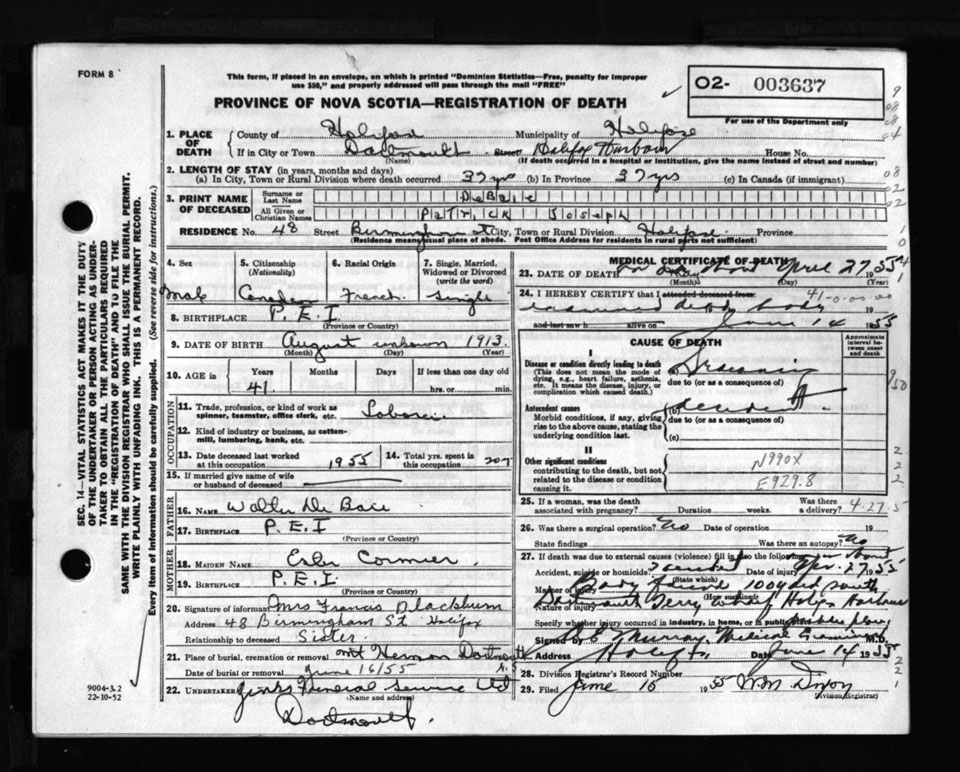 FORM 8
This form, if placed in an envelope, on which is printed "Dominion Statistics—Free, penalty for improper
use $50," and properly addressed will pass through the mail "FREE"
PROVINCE OF NOVA SCOTIA—REGISTRATION OF DEATH
O2- 003637
For use of the Department only
SEC. 14—VITAL STATISTICS ACT MAKES IT THE DUTY
OF THE UNDERTAKER OR PERSON ACTING AS UNDER-
TAKER TO OBTAIN ALL THE PARTICULARS REQUIRED
IN THE "REGISTRATION OF DEATH" AND TO FILE THE
SAME WITH THE DIVISION REGISTRAR WHO SHALL ISSUE THE BURIAL PERMIT.
WRITE PLAINLY WITH UNFADING INK. THIS IS A PERMANENT RECORD.
Every item of information should be carefully supplied. (See reverse side for instructions.)
1. PLACE OF DEATH
County of Halifax Municipality of Halifax
If in City or Town Dartmouth Street Halifax Harbour House No.
(Name) (If death occurred in a hospital or institution, give the name instead of street and number)
2. LENGTH OF STAY (in years, months and days)
(a) In City, Town or Rural Division where death occurred 37 yrs (b) In Province 37 yrs (c) In Canada (if immigrant)
3. PRINT NAME OF DECEASED
Surname or Last Name DeBaie
All Given or Christian Names Patrick Joseph
RESIDENCE No. 48 Street Birmingham St City, Town or Rural Division Halifax Province
(Residence means usual place of abode. Post Office Address for residents in rural parts not sufficient)
4. Sex
5. Citizenship
(Nationality)
6. Racial Origin
7. Single, Married,
Widowed or Divorced
(write the word)
male Canadian French Single
8. BIRTHPLACE P.E.I
(Province or Country)
9. DATE OF BIRTH August unknown 1913
(Month) (Day) (Year)
10. AGE in
Years Months Days If less than one day old
41 hrs. or min.
OCCUPATION
11. Trade, profession, or kind of work as
spinner, teamster, office clerk, etc. Laborer
12. Kind of industry or business, as cotton-
mill, lumbering, bank, etc.
13. Date deceased last worked
at this occupation 1955
14. Total yrs. spent in
this occupation
15. If married give name of wife
or husband of deceased
FATHER
16. NAME Walter De Baie
17. BIRTHPLACE P.E.I
(Province or Country)
MOTHER
18. MAIDEN NAME Cormier
19. BIRTHPLACE P.E.I.
(Province or Country)
20. Signature of informant Mrs Francis Blackburn
Address 48 Birmingham St Halifax
Relationship to deceased Sister
21. Place of burial, cremation or removal Mt Hermon Dartmouth
N.S
Date of burial or removal June 16/55
22. UNDERTAKER Funeral Service Ltd
(Name and address)
Dartmouth.
9004-3.2
22-10-52
MEDICAL CERTIFICATE OF DEATH
23. DATE OF DEATH on or about April 27 55
(Month) (Day) (Year)
24. I HEREBY CERTIFY that I attended deceased from:
examined dead body 19
and last saw h alive on June 14 1955
CAUSE OF DEATH
Approximate interval between onset and death
I
Disease or condition directly leading to death
(This does not mean the mode of
dying, e.g., heart failure, asthenia,
etc. It means the disease, injury, or
complication which caused death.)
due to (or as a consequence of)
Antecedent causes
Morbid conditions, if any, giving
rise to the above cause, stating the
underlying condition last.
(b) accident
due to (or as a consequence of)
(c)
II
Other significant conditions
contributing to the death, but not
related to the disease or condition
causing it.
N990X
E929.8
25. If a woman, was the death
associated with pregnancy? Duration weeks. Was there
a delivery?
4-27-5
26. Was there a surgical operation? No Date of operation 19
State findings Was there an autopsy? No
27. If death was due to external causes (violence) fill in also the following: on or about
Accident, suicide or homicide? accident Date of injury Apr. 27 1955
(State which)
Manner of injury Body found 100 yard south
(How sustained)
Nature of injury Dartmouth Ferry wharf Halifax Harbour
Specify whether injury occurred in industry, in home, or in public place
Signed by Murray, Medical Examiner M.D.
Address Halifax Date June 14 1955
28. Division Registrar's Record Number
29. Filed June 16 1955 W.M. Dixon
(Division Registrar)